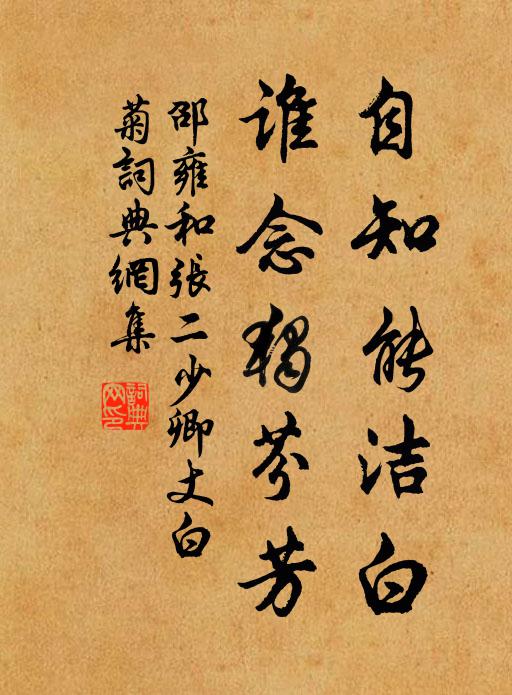 自知能洁白
谁念獨芬芳
邵雍和張二少卿丈白
菊詞典網集
詞典
网印